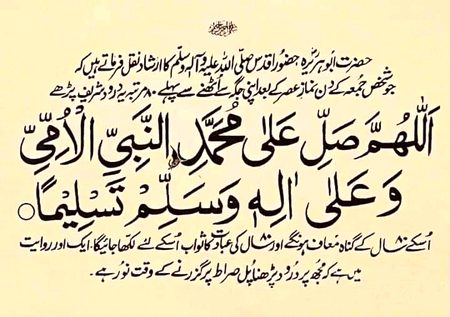 حضرت ابو ہریرہؓ حضور اقدس صلی اللہ علیہ وآلہ وسلم کا ارشاد نقل فرماتے ہیں کہ
جو شخص جمعہ کے دن نماز عصر کے بعد اپنی جگہ سے اٹھنے سے پہلے ۸۰ مرتبہ یہ درود شریف پڑھے
اَللّٰهُمَّ صَلِّ عَلٰى مُحَمَّدِ ࣙالنَّبِيِّ الْاُمِّيِّ
وَعَلٰى اٰلِهٖ وَسَلِّمْ تَسْلِيْمًا○
اُسکے ۸۰ سال کے گناہ معاف ہونگے اور ۸۰ سال کی عبادت کا ثواب اُسکے لئے لکھا جائیگا۔ ایک اور روایت
میں ہے کہ مجھ پر درود پڑھنا پل صراط پر گزرنے کے وقت نور ہے۔